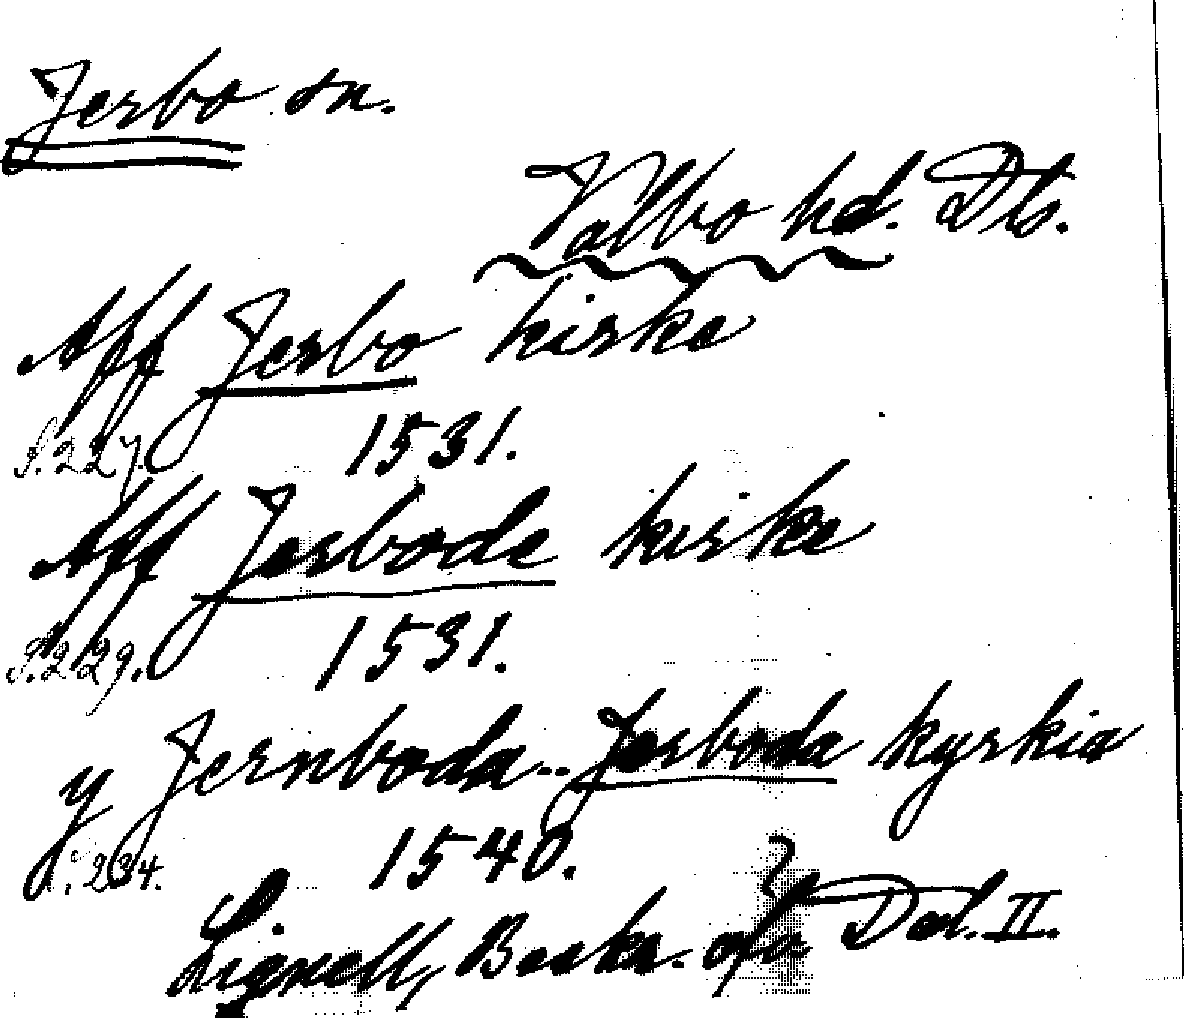 Jerbo sn.
Valbo hd. Dls.
Aff Jerbo kirke
S. 227. 1531.
Aff Jerbode kirke
S. 229. 1531.
y Jernboda .. Jerboda kyrkia
S. 234. 1540.
Lignell, Beskr. öfr Dal. II.